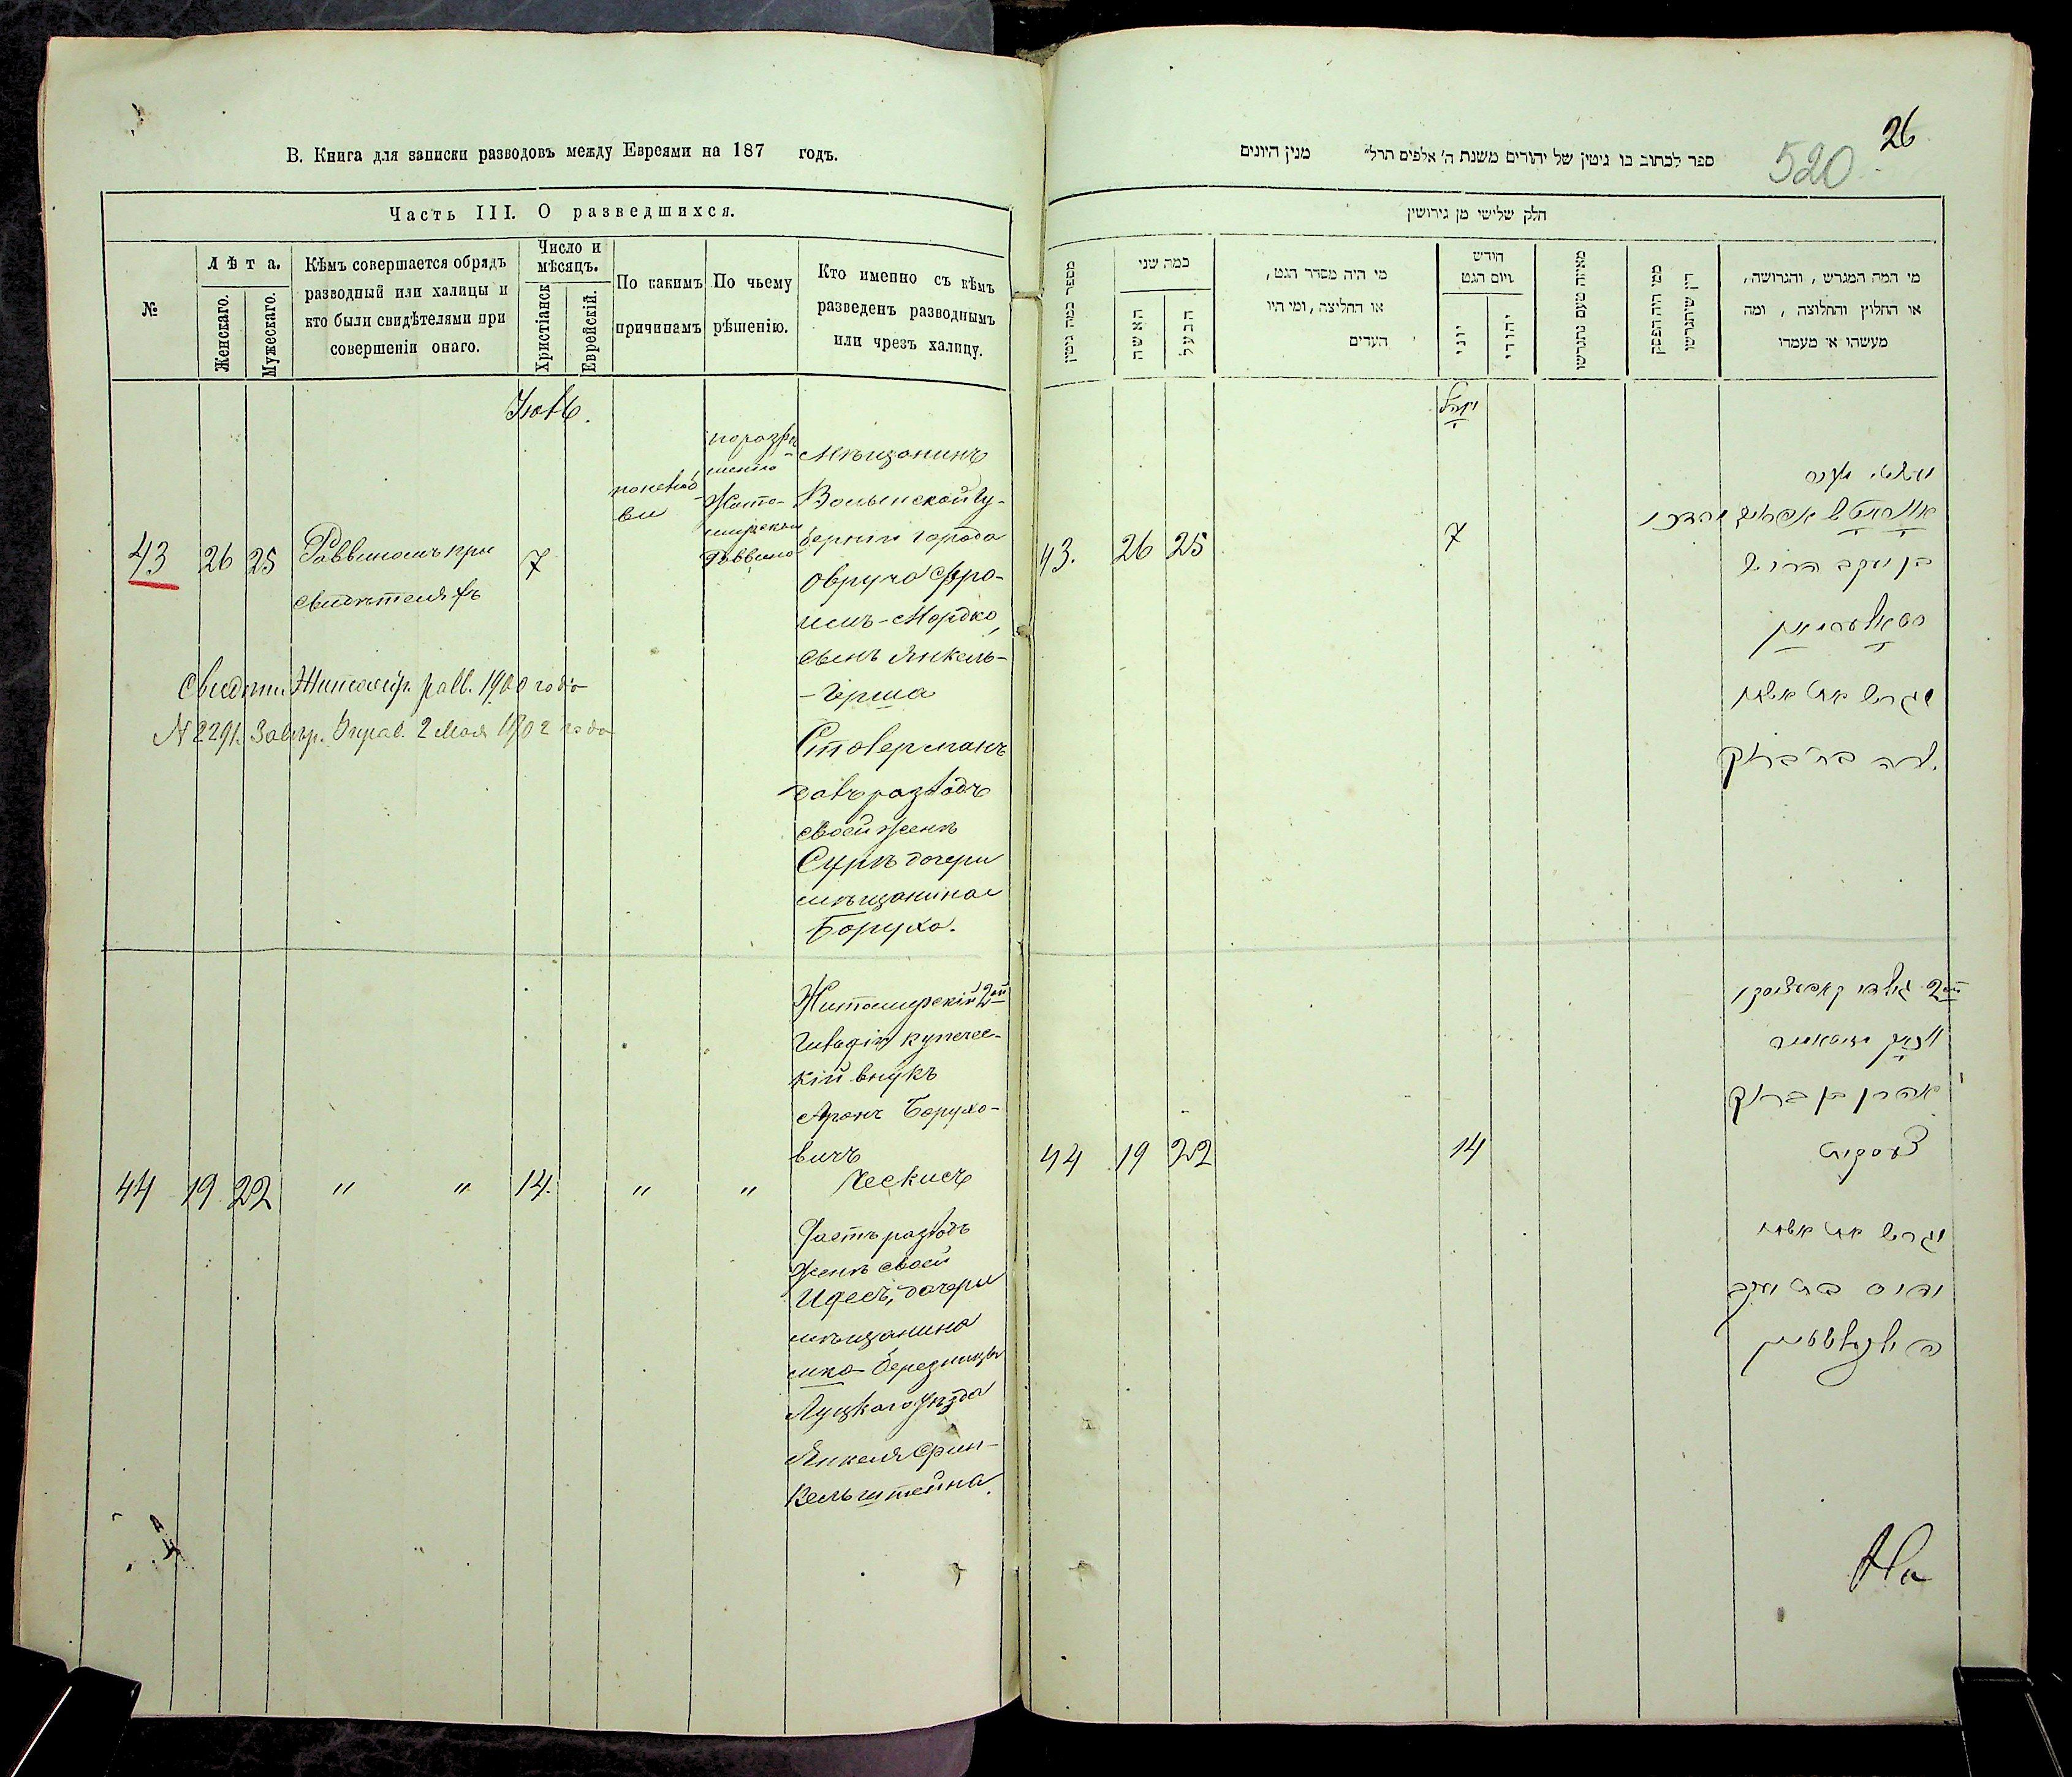 В. Книга для записки разводовъ между Евреями на 187 годъ.
Часть III. О разведшихся.
№
Лѣта.
Женскаго.
Мужескаго.
Кѣмъ совершается обрядъ
разводный или халицы и
кто были свидѣтелями при
совершеніи онаго.
Число и
мѣсяцъ.
Христіанск
Еврейскій.
По какимъ
причинамъ
По чьему
рѣшенію.
Кто именно съ кѣмъ
разведенъ разводнымъ
или чрезъ халицу.
43
26
25
Раввиномъ при
свидѣтеляхъ
7
Мѣщанинъ
Волынской Гу-
берніи города
Овруча Фро-
имъ-Мордко,
сынъ Янкель-
-Герша
Столерманъ
далъ разводъ
своей женѣ
Суркѣ дочери
мѣщанина
Боруха.
Житомир. равв. 1900 года
№ 2291. Завѣр. Управ. 2 Мая 1902 года
44
19
22
" "
14.
"
"
Житомирскій 2ой
Гильдіи купечес-
кій внукъ
Аронъ Борухо-
вичъ
Ческисъ
Даетъ разводъ
женѣ своей
Идесъ, дочери
мѣщанина
мка Березницы
Луцкаго уѣзда
Янкеля Фин-
кельштейна.
26
520
ספר לכתוב בו גיטין של יהודים משנת ה' אלפים תרל" מנין היונים
חלק שלישי מן גירושין
מספר כמה גיטין
כמה שני
האשה
הבעל
מי היה מסדר הגט,
או החליצה, ומי היו
העדים
חודש
ויום הגט
יוני
יהודי
מאיזה טעם נתגרשו
ממי היה הפסק
דין שיתגרשו
מי המה המגרש, והגרושה,
או החלוץ והחלוצה, ומה
מעשהו או מעמדו
43.
26
25
7
בן יעקב הירש
גירש את אשתו
שרה בת ברוך
44
19
22
14
אהרן בן ברוך
גירש את אשתו